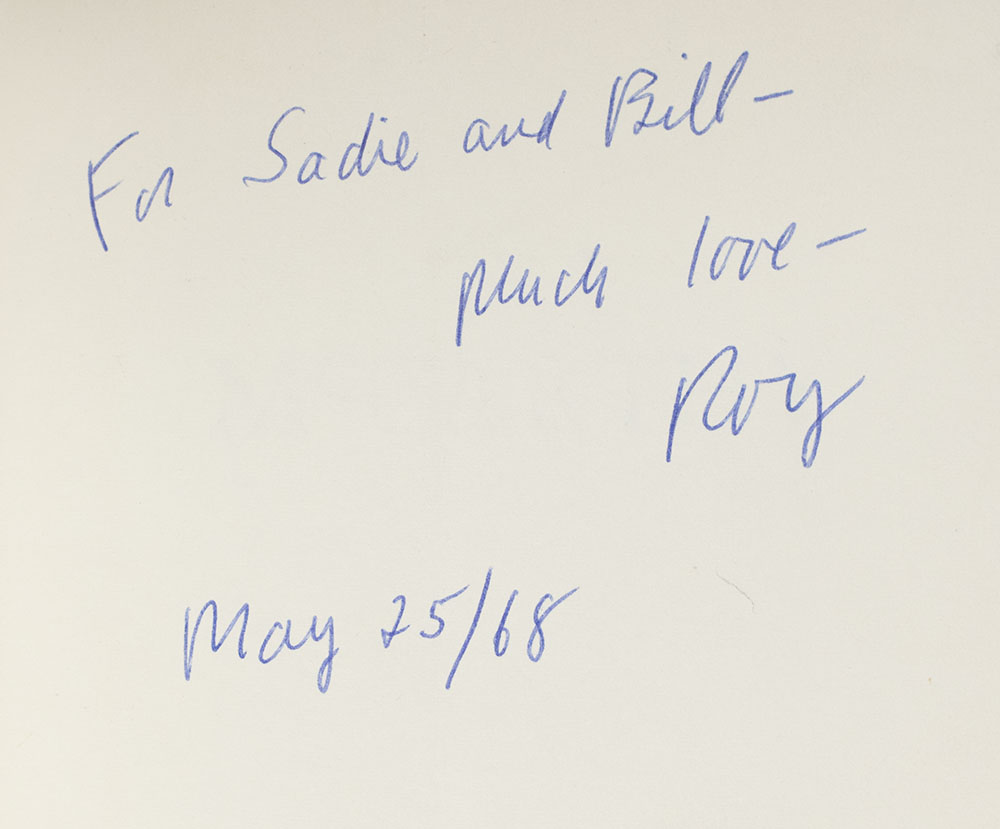 For Sadie and Bill –
Much love –
Roy
May 25/68